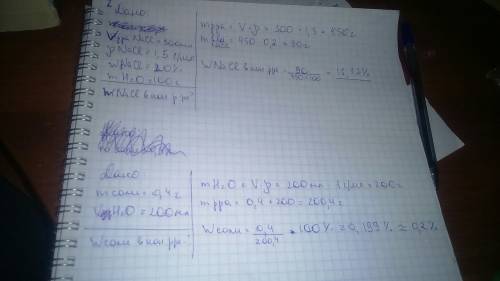 2 Дано:
Vрра NaCl = 300мл
ρ NaCl = 1,5 г/мл
w NaCl = 20%
m H2O = 100г
wNaCl в кон рр-?
m рра = V·ρ = 300 · 1,5 = 450г
m NaCl = 450 · 0,2 = 90г
W NaCl в кон рр = 90/450+100 = 16,37%
Дано
m соли = 0,4 г
VH2O = 200 мл
W соли в кон рр-?
m H2O = V·ρ = 200 мл · 1 г/мл = 200г
m рра = 0,4 + 200 = 200,4г
W соли = 0,4/200,4 · 100% = 0,199 % ≈ 0,2%